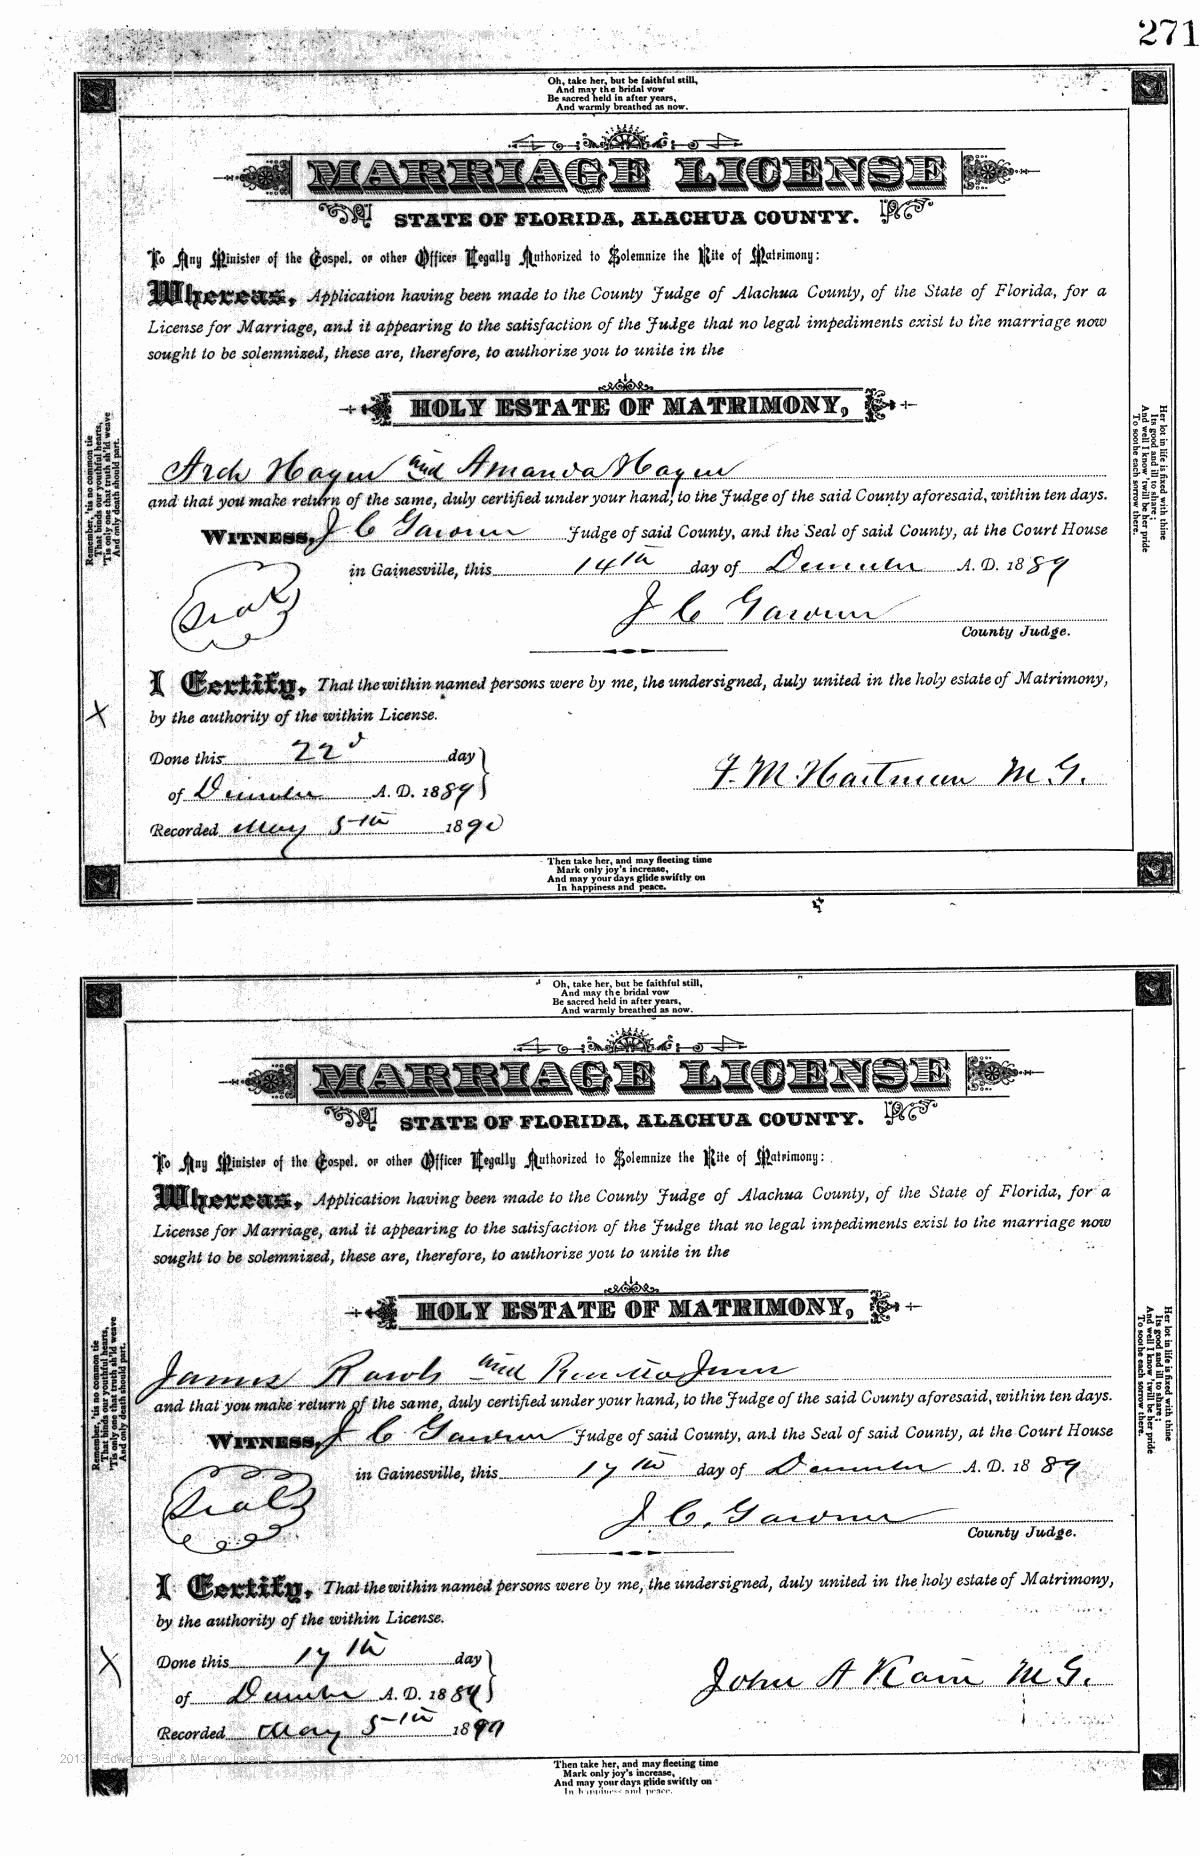 271
Oh, take her, but be faithful still,
And may the bridal vow
Be sacred held in after years,
And warmly breathed as now.
MARRIAGE LICENSE
STATE OF FLORIDA, ALACHUA COUNTY.
To Any Minister of the Gospel, or other Officer Legally Authorized to Solemnize the Rite of Matrimony:
Whereas, Application having been made to the County Judge of Alachua County, of the State of Florida, for a
License for Marriage, and it appearing to the satisfaction of the Judge that no legal impediments exist to the marriage now
sought to be solemnized, these are, therefore, to authorize you to unite in the
HOLY ESTATE OF MATRIMONY,
Arch Hagen and Amanda Hagen
and that you make return of the same, duly certified under your hand, to the Judge of the said County aforesaid, within ten days.
WITNESS, J C Gardner Judge of said County, and the Seal of said County, at the Court House
in Gainesville, this 14th day of December A. D. 1889
Seal
J C Gardner
County Judge.
I Certify, That the within named persons were by me, the undersigned, duly united in the holy estate of Matrimony,
by the authority of the within License.
X
Done this 22d day
of December A. D. 1889
F. M. Hartman M. G.
Recorded May 5th 1890
Remember, 'tis no common tie
That binds our youthful hearts,
'Tis only one that truth sh'ld weave
And only death should part.
Her lot in life is fixed with thine
Its good and ill to share;
And well I know 'twill be her pride
To soothe each sorrow there.
Then take her, and may fleeting time
Mark only joy's increase,
And may your days glide swiftly on
In happiness and peace.
Oh, take her, but be faithful still,
And may the bridal vow
Be sacred held in after years,
And warmly breathed as now.
MARRIAGE LICENSE
STATE OF FLORIDA, ALACHUA COUNTY.
To Any Minister of the Gospel, or other Officer Legally Authorized to Solemnize the Rite of Matrimony:
Whereas, Application having been made to the County Judge of Alachua County, of the State of Florida, for a
License for Marriage, and it appearing to the satisfaction of the Judge that no legal impediments exist to the marriage now
sought to be solemnized, these are, therefore, to authorize you to unite in the
HOLY ESTATE OF MATRIMONY,
James Rawls and
and that you make return of the same, duly certified under your hand, to the Judge of the said County aforesaid, within ten days.
WITNESS, J C Gardner Judge of said County, and the Seal of said County, at the Court House
in Gainesville, this 17th day of December A. D. 1889
Seal
J. C. Gardner
County Judge.
I Certify, That the within named persons were by me, the undersigned, duly united in the holy estate of Matrimony,
by the authority of the within License.
X
Done this 17th day
of December A. D. 1889
John A Kain M. G.
Recorded May 5th 18
Remember, 'tis no common tie
That binds our youthful hearts,
'Tis only one that truth sh'ld weave
And only death should part.
Her lot in life is fixed with thine
Its good and ill to share;
And well I know 'twill be her pride
To soothe each sorrow there.
Then take her, and may fleeting time
Mark only joy's increase,
And may your days glide swiftly on
In happiness and peace.